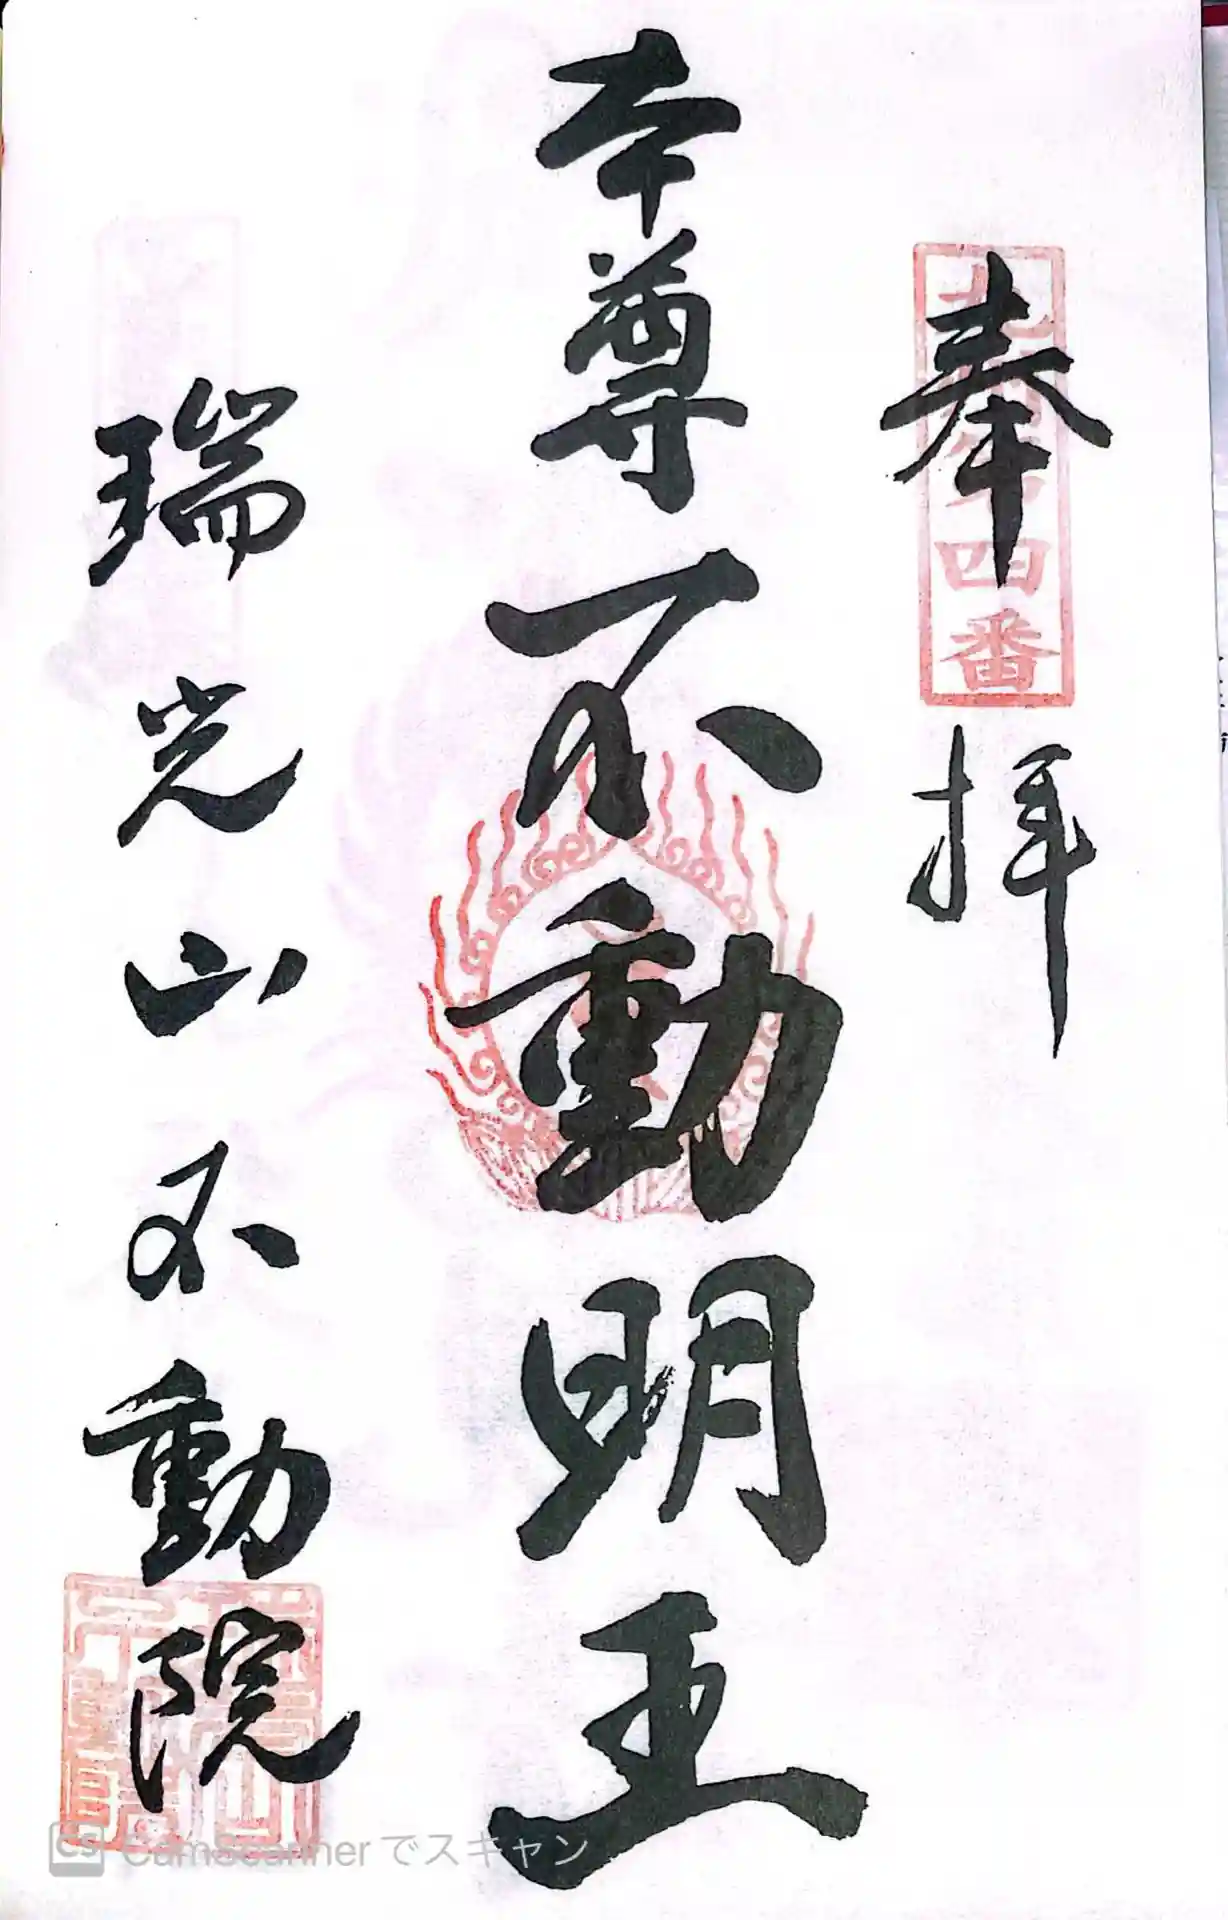 奉拝
四番
本尊不動明王
瑞光山不動院
CS CamScannerでスキャン